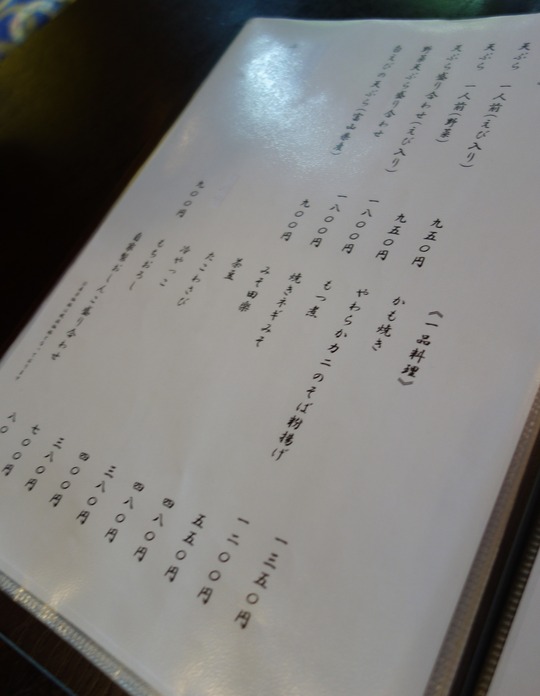 天ぷら
天ぷら 一人前(えび入り) 九五〇円
天ぷら 一人前(野菜) 九五〇円
天ぷら盛り合わせ(えび入り) 一八〇〇円
野菜天ぷら盛り合わせ 一八〇〇円
白えびの天ぷら(富山県産) 九〇〇円
九〇〇円
《一品料理》
かも焼き 一三五〇円
やわらかカニのそば粉揚げ 一二〇〇円
もつ煮 五五〇円
焼きネギみそ 四八〇円
みそ田楽 四八〇円
茶豆 三八〇円
たこわさび 四〇〇円
冷やっこ 三八〇円
もちおろし 七〇〇円
自家製おしんこ盛り合わせ 八〇円